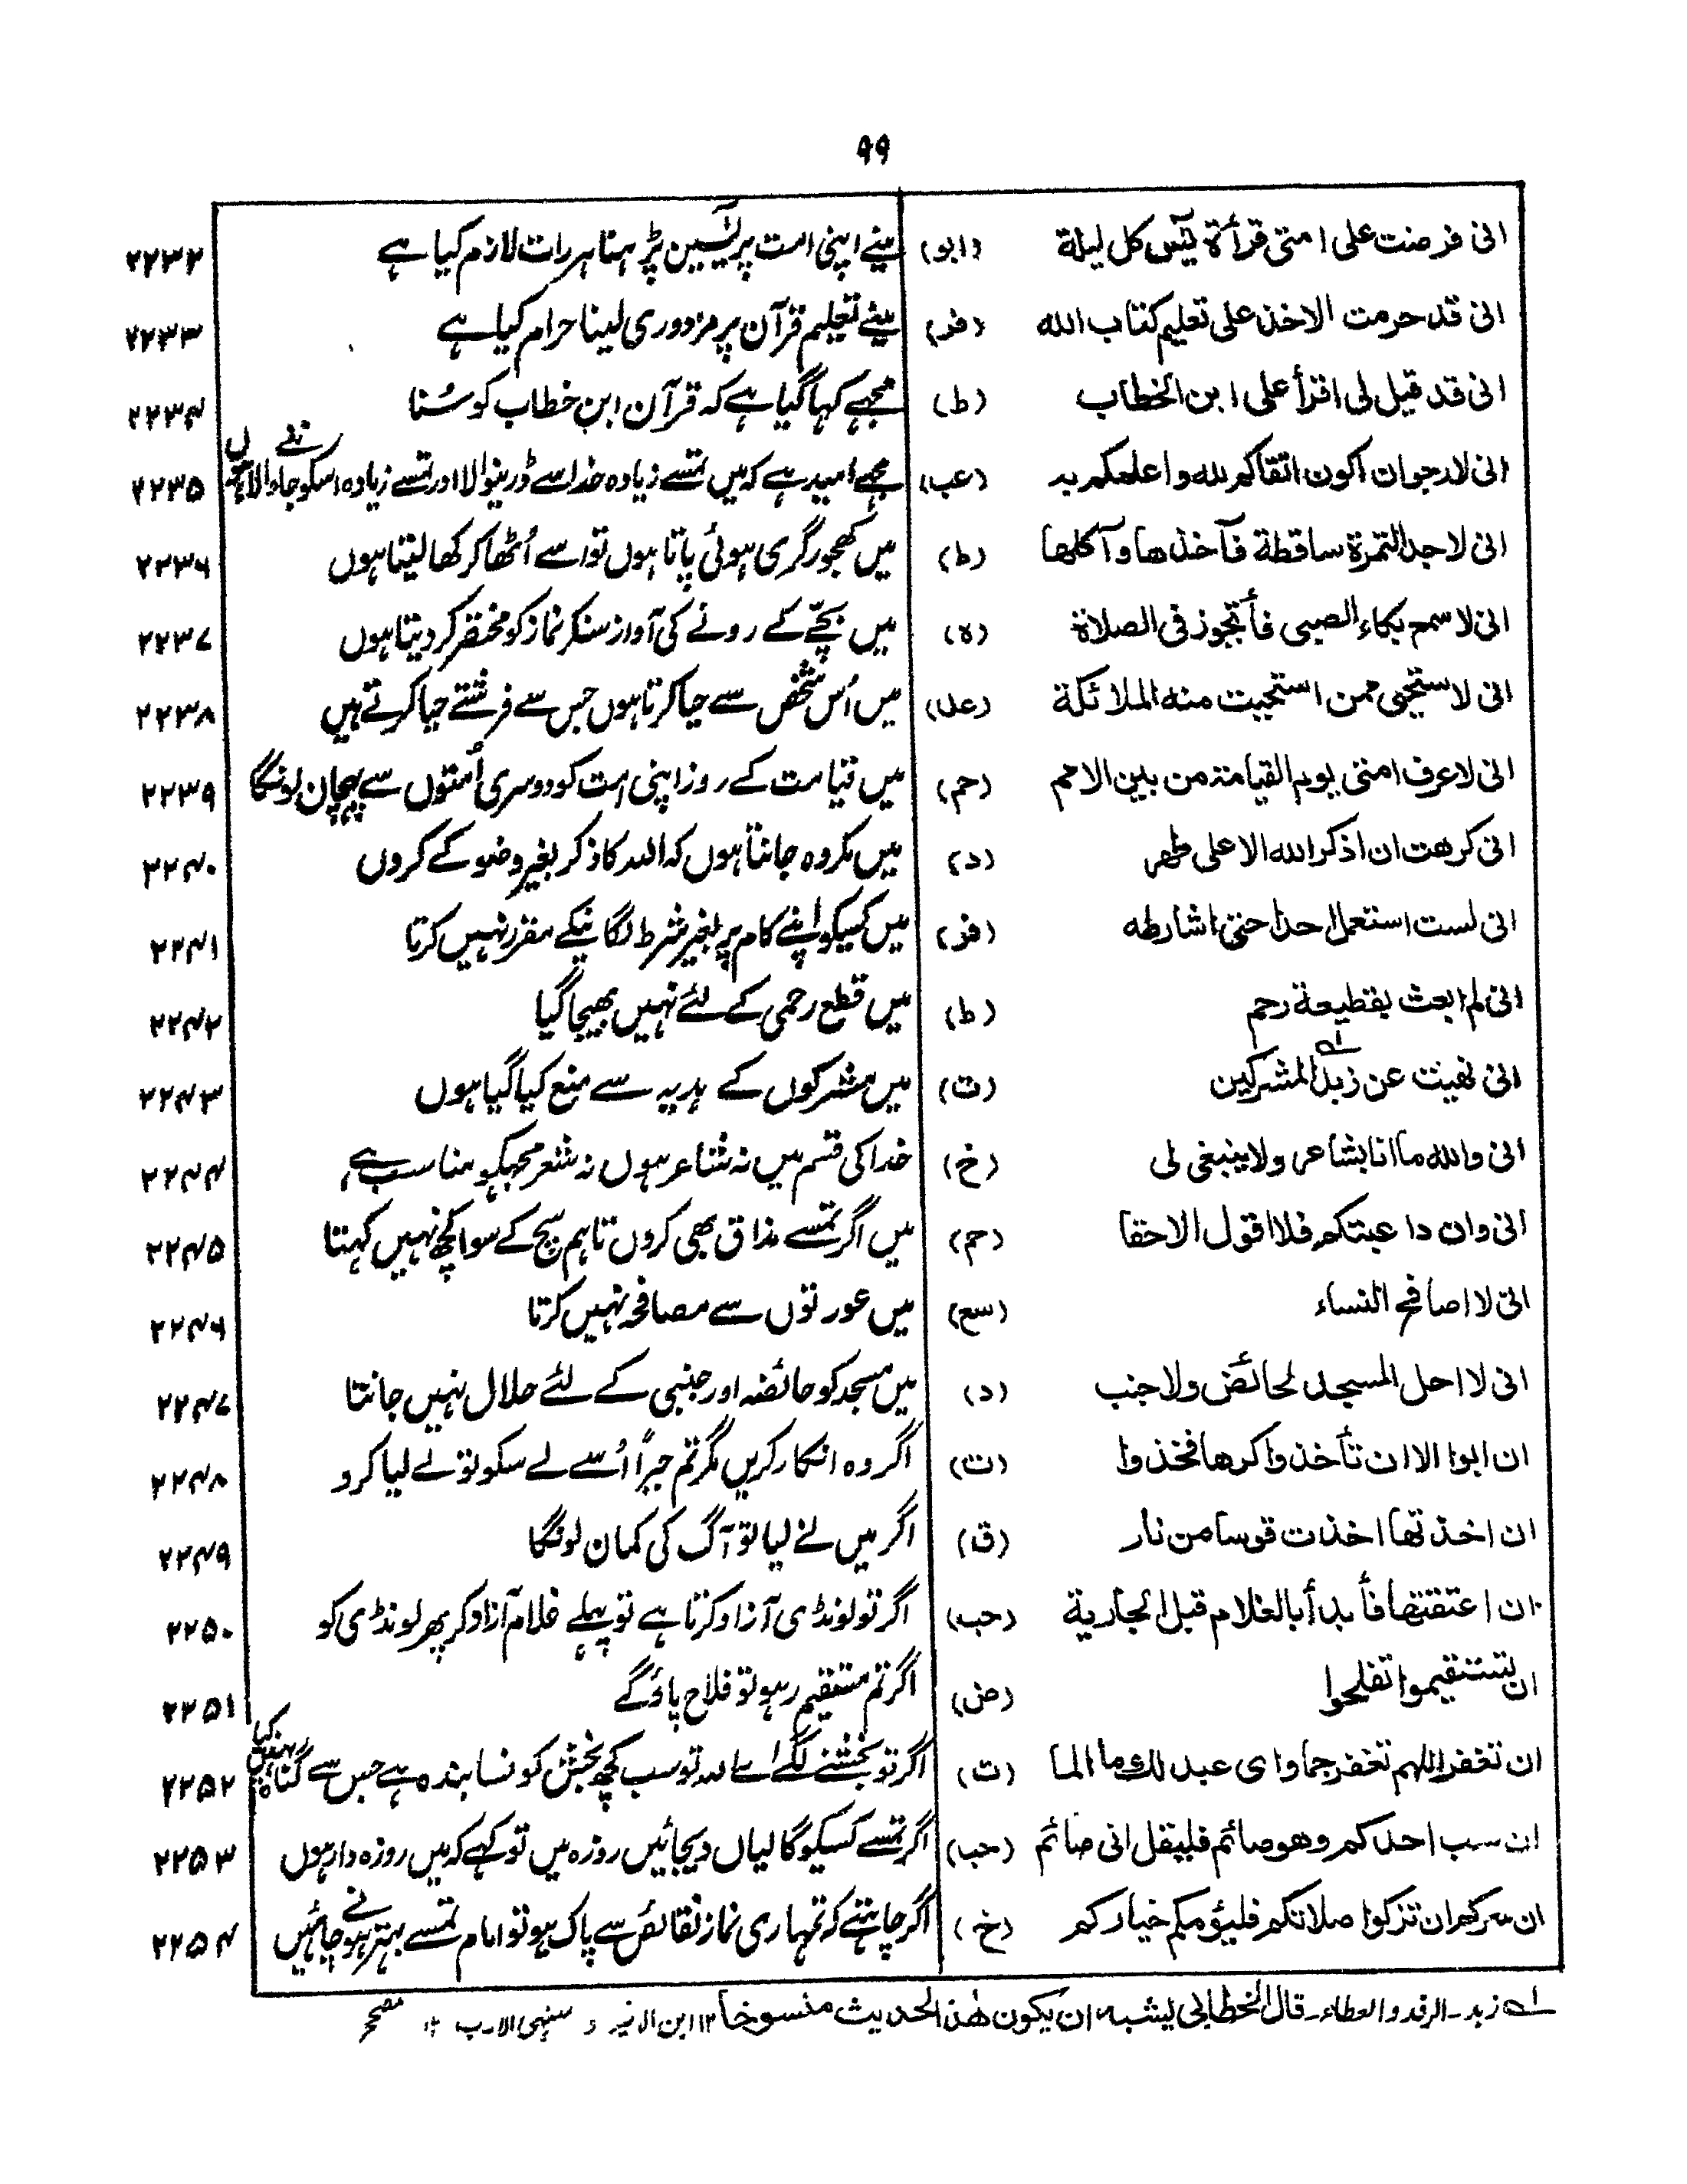 ۹۹
انی فرضت علی امتی قرأۃ یٰسٓ کل لیلۃ (ابو) مینے اپنی امت پر یٰسین پڑہنا ہر رات لازم کیا ہے ۲۲۳۲
انی قد حرمت الاخذ علی تعلیم کتاب اللہ (فر) مینے تعلیم قرآن پر مزدوری لینا حرام کیا ہے ۲۲۳۳
انی قد قیل لی اقرأ علی ابن الخطاب (ط) مجہے کہا گیا ہے کہ قرآن ابن خطاب کو سُنا ۲۲۳۴
انی لارجوان اکون اتقاکم للہ واعلمکم بہ (عب) مجہے امید ہے کہ میں تمسے زیادہ خدا سے ڈرینوالا اور تمسے زیادہ اسکو جاننے والا ہوں ۲۲۳۵
انی لاجد التمرۃ ساقطۃ فآخذها وآکلها (ط) میں کھجور گری ہوئی پاتا ہوں تو اسے اُٹھا کر کھا لیتا ہوں ۲۲۳۶
انی لاسمع بکاء الصبی فأتجوز فی الصلاۃ (ہ) میں بچّے کے رونے کی آواز سنکر نماز کو مختصر کر دیتا ہوں ۲۲۳۷
انی لاستحیی ممن استحیت منہ الملائکۃ (عد) میں اُس شخص سے حیا کرتا ہوں جس سے فرشتے حیا کرتے ہیں ۲۲۳۸
انی لاعرف امتی یوم القیامۃ من بین الامم (حم) میں قیامت کے روز اپنی امت کو دوسری اُمتوں سے پہچان لونگا ۲۲۳۹
انی کرهت ان اذکر اللہ الا علی طهر (د) میں مکروہ جانتا ہوں کہ اللہ کا ذکر بغیر وضو کے کروں ۲۲۴۰
انی لست استعمل احدا حتی اشارطہ (فر) میں کسیکو اپنے کام پر بغیر شرط لگانیکے مقرر نہیں کرتا ۲۲۴۱
انی لم ابعث بقطیعۃ رحم (ط) میں قطع رحمی کے لئے نہیں بھیجا گیا ۲۲۴۲
انی نهیت عن زبد المشرکین ۱ (ت) میں مشرکوں کے ہدیہ سے منع کیا گیا ہوں ۲۲۴۳
انی واللہ ما انا بشاعر ولا ینبغی لی (خ) خدا کی قسم میں نہ شاعر ہوں نہ شعر مجہکو مناسب ہے ۲۲۴۴
انی وان داعبتکم فلا اقول الاحقا (حم) میں اگر تمسے مذاق بھی کروں تاہم سچ کے سوا کچھ نہیں کہتا ۲۲۴۵
انی لا اصافح النساء (سع) میں عورتوں سے مصافحہ نہیں کرتا ۲۲۴۶
انی لا احل المسجد لحائض ولا جنب (د) میں مسجد کو حائضہ اور جنبی کے لئے حلال نہیں جانتا ۲۲۴۷
ان ابوا الا ان تأخذوا کرها فخذوا (ت) اگر وہ انکار کریں مگر تم جبراً اُسے لے سکو تو لے لیا کرو ۲۲۴۸
ان اخذتها اخذت قوسا من نار (ق) اگر میں نے لیا تو آگ کی کمان لونگا ۲۲۴۹
ان اعتقتها فأبدأ بالغلام قبل الجاریۃ (حب) اگر تو لونڈی آزاد کرتا ہے تو پہلے غلام آزاد کر پھر لونڈی کو ۲۲۵۰
ان تستقیموا تفلحوا (ض) اگر تم مستقیم رہو تو فلاح پاؤگے ۲۲۵۱
ان تغفر اللهم تغفر جما وای عبد لک ما الما (ت) اگر تو بخشنے لگے اے اللہ تو سب کچھ بخش کونسا بندہ ہے جس سے گناہ نہیں کیا ۲۲۵۲
ان سب احدکم وهو صائم فلیقل انی صائم (حب) اگر تمسے کسیکو گالیاں دیجائیں روزہ میں تو کہے کہ میں روزہ دار ہوں ۲۲۵۳
ان سرکم ان تزکوا صلاتکم فلیؤمکم خیارکم (خ) اگر چاہتے کہ تمہاری نماز نقائص سے پاک ہو تو امام تمسے بہتر ہونے چاہئیں ۲۲۵۴
۱ زبد ۔ الرفد والعطاء ۔ قال الخطابی یشبہ ان یکون هذا الحدیث منسوخا ۱۲ ابن الاثیر و منتہی الارب ۱۲ مصحح